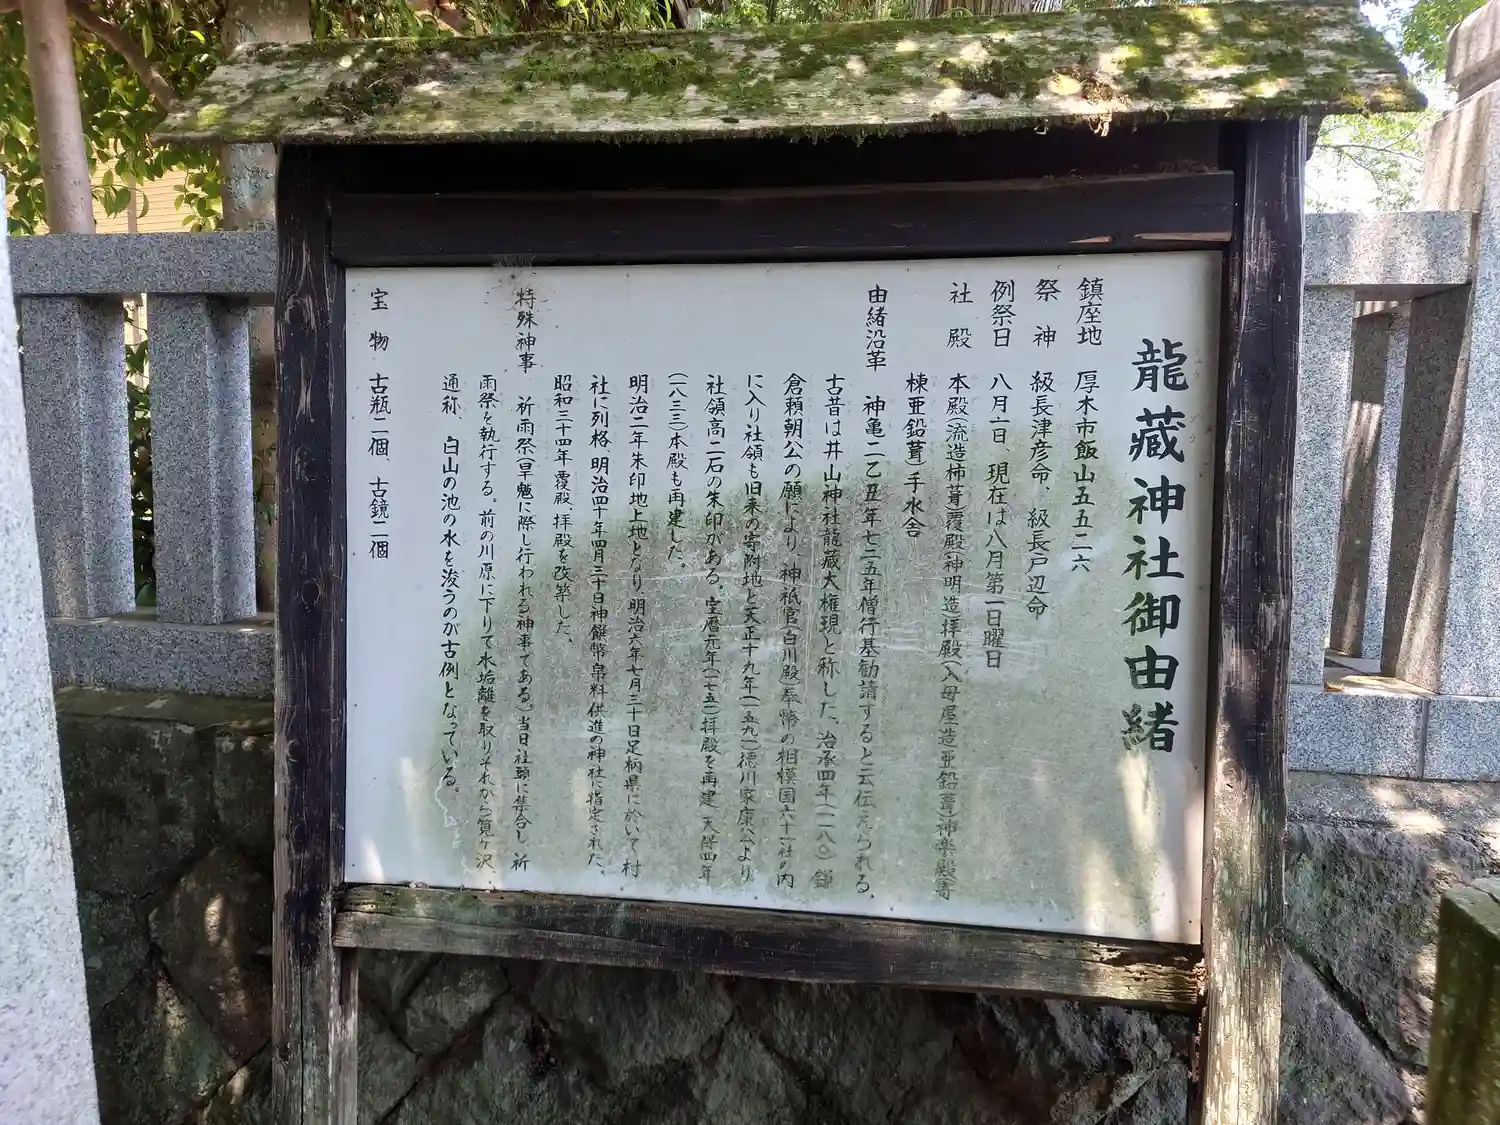 龍蔵神社御由緒
鎮座地 厚木市飯山五五二六
祭神 級長津彦命、級長戸辺命
例祭日 八月一日、現在は八月第一日曜日
社殿 本殿(流造柿葺)覆殿(神明造)拝殿(入母屋造亜鉛葺)神楽殿(寄
棟亜鉛葺)手水舎
由緒沿革 神亀二乙丑年七二五年僧行基勧請すると云伝えられる。
古昔は井山神社龍蔵大権現と称した、治承四年(一一八〇)鎌
倉頼朝公の願により、神祇官(白川殿)奉幣の相模国六十一社の内
に入り社領も旧来の寄附地と天正十九年(一五九一)徳川家康公より
社領高二石の朱印がある。宝暦元年(一七五一)拝殿を再建 天保四年
(一八三三)本殿も再建した。
明治二年朱印地上地となり、明治六年七月三十日足柄県に於いて村
社に列格、明治四十年四月三十日神饌幣帛料供進の神社に指定された。
昭和三十四年覆殿、拝殿を改築した。
特殊神事 祈雨祭(旱魃に際し行われる神事である。)当日社頭に集合し 祈
雨祭を執行する。前の川原に下りて水垢離を取りそれから筧ヶ沢、
通称、白山の池の水を浚うのが古例となっている。
宝物 古瓶二個、古鏡二個